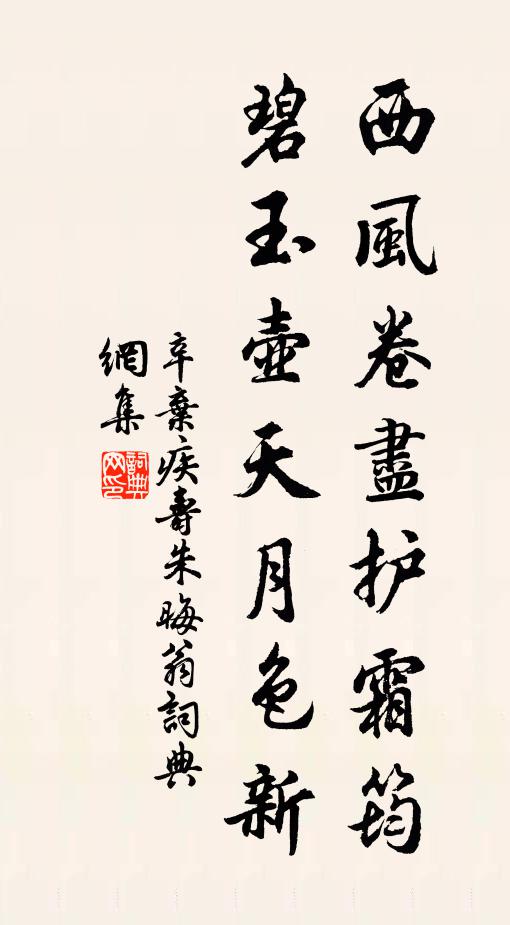 西風卷盡护霜筠
碧玉壺天月色新
辛棄疾壽朱晦翁詞典
網集
詞典
网印